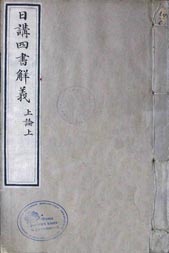 日講四書解義 上論上